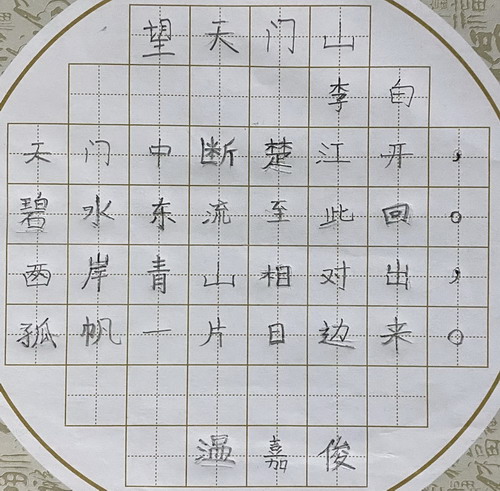 望天门山
李白
天门中断楚江开，
碧水东流至此回。
两岸青山相对出，
孤帆一片日边来。
温嘉俊